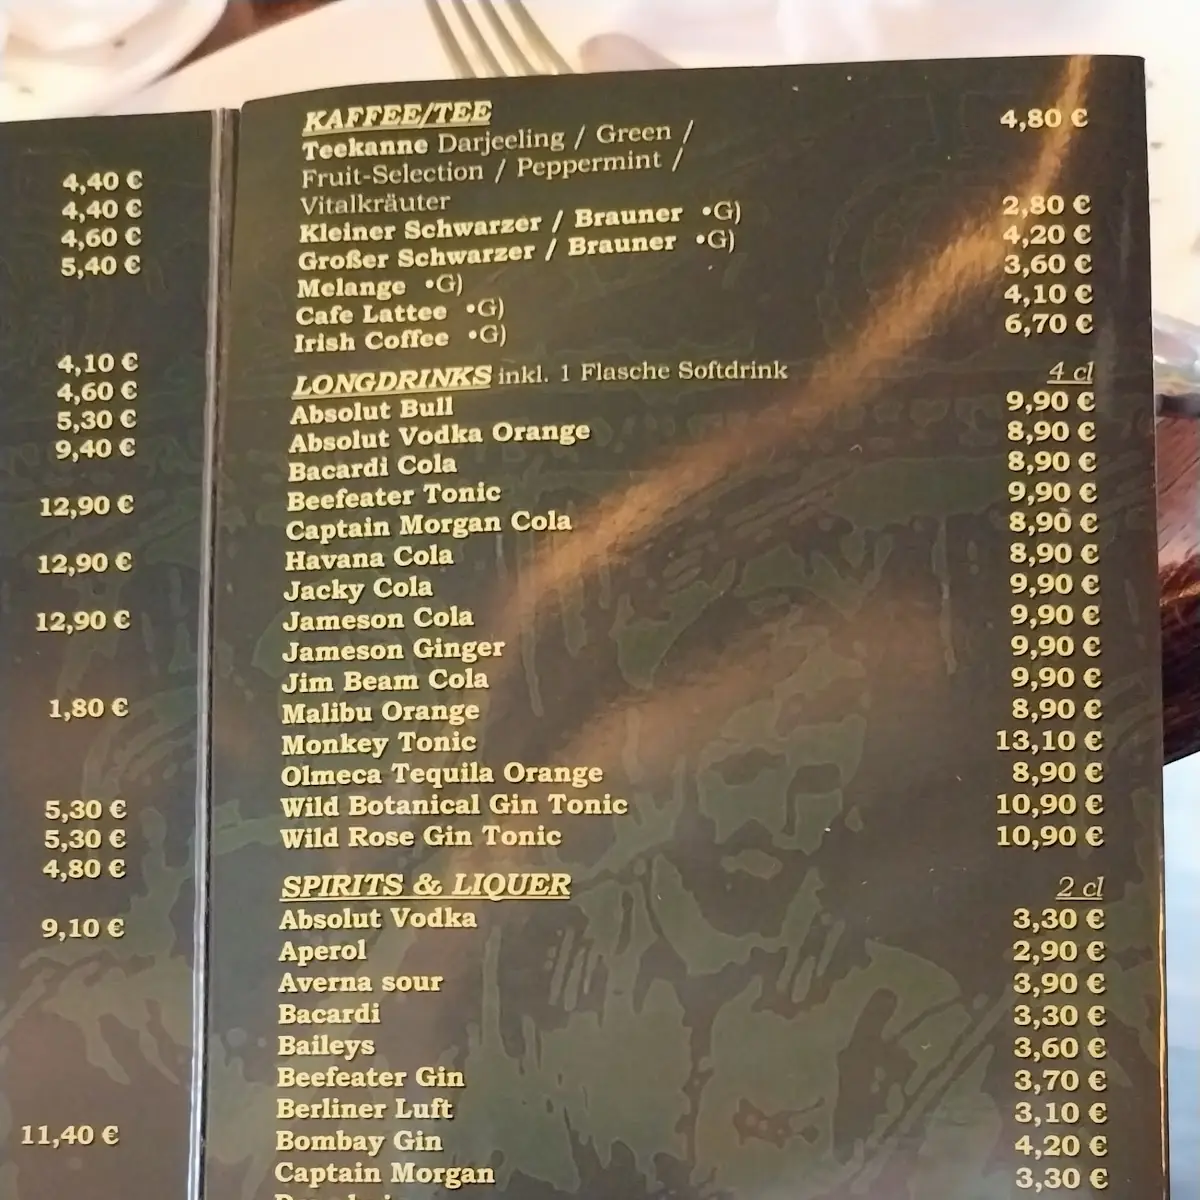 4,40 €
4,40 €
4,60 €
5,40 €
4,10 €
4,60 €
5,30 €
9,40 €
12,90 €
12,90 €
12,90 €
1,80 €
5,30 €
5,30 €
4,80 €
9,10 €
11,40 €
KAFFEE/TEE
Teekanne Darjeeling / Green / 4,80 €
Fruit-Selection / Peppermint /
Vitalkräuter
Kleiner Schwarzer / Brauner •G) 2,80 €
Großer Schwarzer / Brauner •G) 4,20 €
Melange •G) 3,60 €
Cafe Lattee •G) 4,10 €
Irish Coffee •G) 6,70 €
LONGDRINKS inkl. 1 Flasche Softdrink 4 cl
Absolut Bull 9,90 €
Absolut Vodka Orange 8,90 €
Bacardi Cola 8,90 €
Beefeater Tonic 9,90 €
Captain Morgan Cola 8,90 €
Havana Cola 8,90 €
Jacky Cola 9,90 €
Jameson Cola 9,90 €
Jameson Ginger 9,90 €
Jim Beam Cola 9,90 €
Malibu Orange 8,90 €
Monkey Tonic 13,10 €
Olmeca Tequila Orange 8,90 €
Wild Botanical Gin Tonic 10,90 €
Wild Rose Gin Tonic 10,90 €
SPIRITS & LIQUER 2 cl
Absolut Vodka 3,30 €
Aperol 2,90 €
Averna sour 3,90 €
Bacardi 3,30 €
Baileys 3,60 €
Beefeater Gin 3,70 €
Berliner Luft 3,10 €
Bombay Gin 4,20 €
Captain Morgan 3,30 €